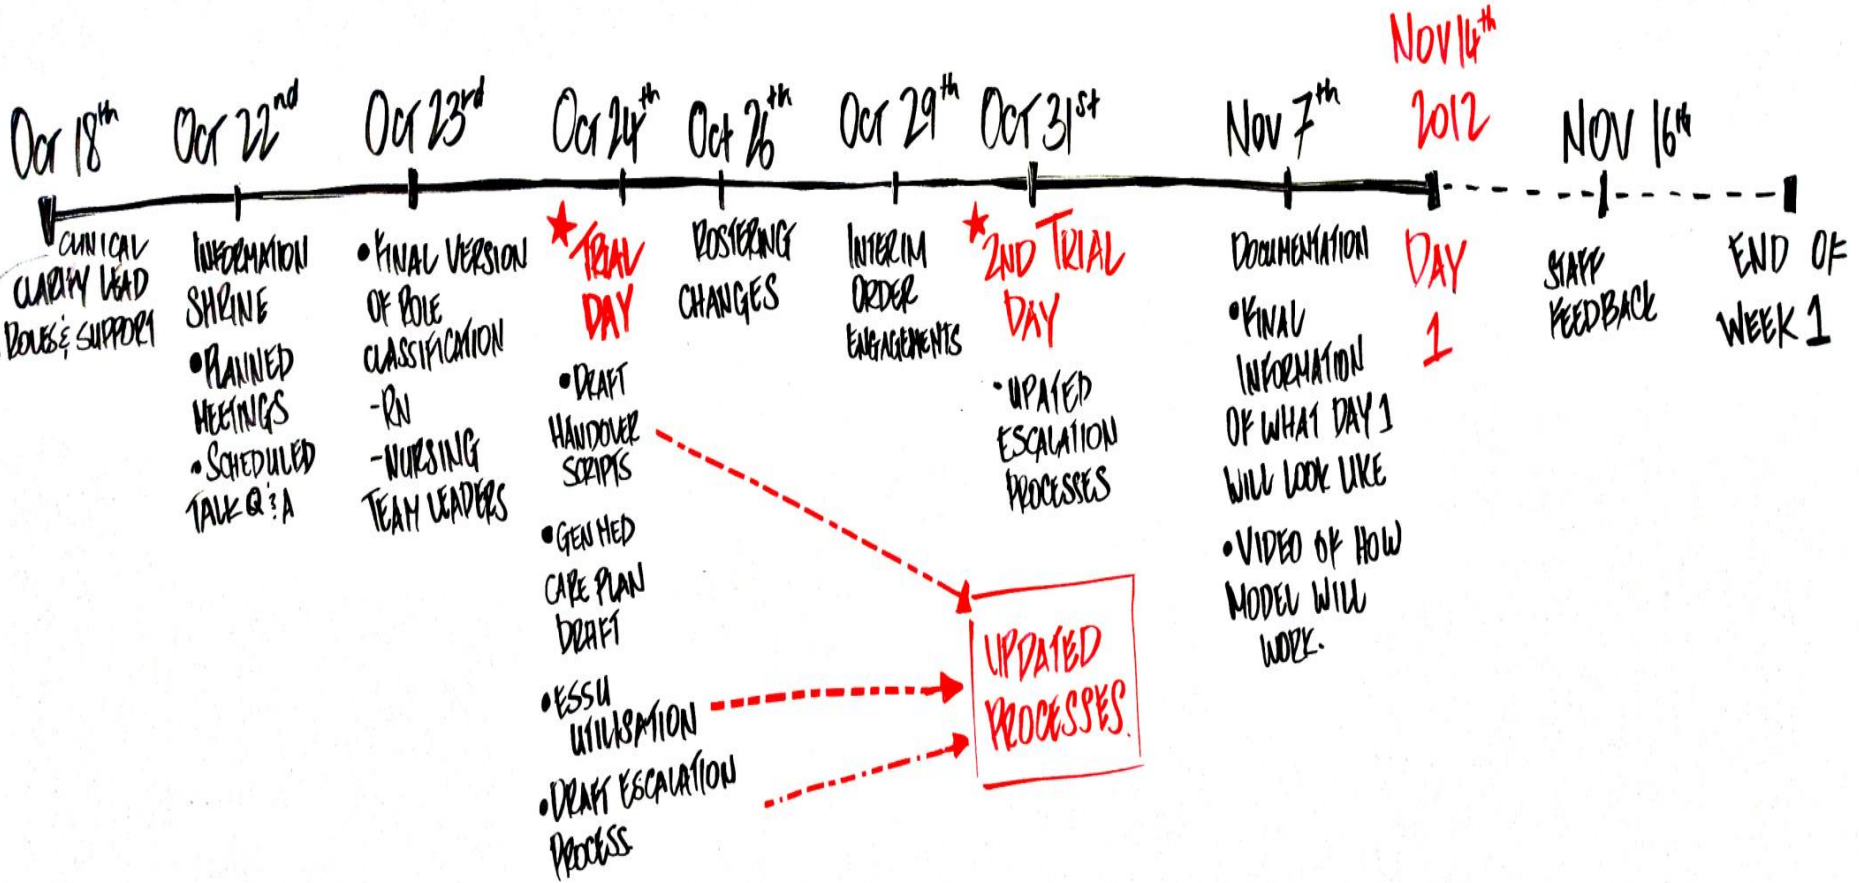 Oct 18th
CLINICAL
CLARIFY LEAD
ROLES & SUPPORT
Oct 22nd
INFORMATION
SHRINE
• PLANNED
MEETINGS
• SCHEDULED
TALK Q & A
Oct 23rd
• FINAL VERSION
OF ROLE
CLASSIFICATION
- RN
- NURSING
TEAM LEADERS
Oct 24th
★ TRIAL
DAY
• DRAFT
HANDOVER
SCRIPTS
• GEN MED
CARE PLAN
DRAFT
• ESSU
UTILISATION
• DRAFT ESCALATION
PROCESS
Oct 26th
ROSTERING
CHANGES
Oct 29th
INTERIM
ORDER
ENGAGEMENTS
Oct 31st
★ 2ND TRIAL
DAY
• UPATED
ESCALATION
PROCESSES
UPDATED
PROCESSES.
Nov 7th
DOCUMENTATION
• FINAL
INFORMATION
OF WHAT DAY 1
WILL LOOK LIKE
• VIDEO OF HOW
MODEL WILL
WORK.
Nov 14th
2012
DAY
1
NOV 16th
STAFF
FEEDBACK
END OF
WEEK 1